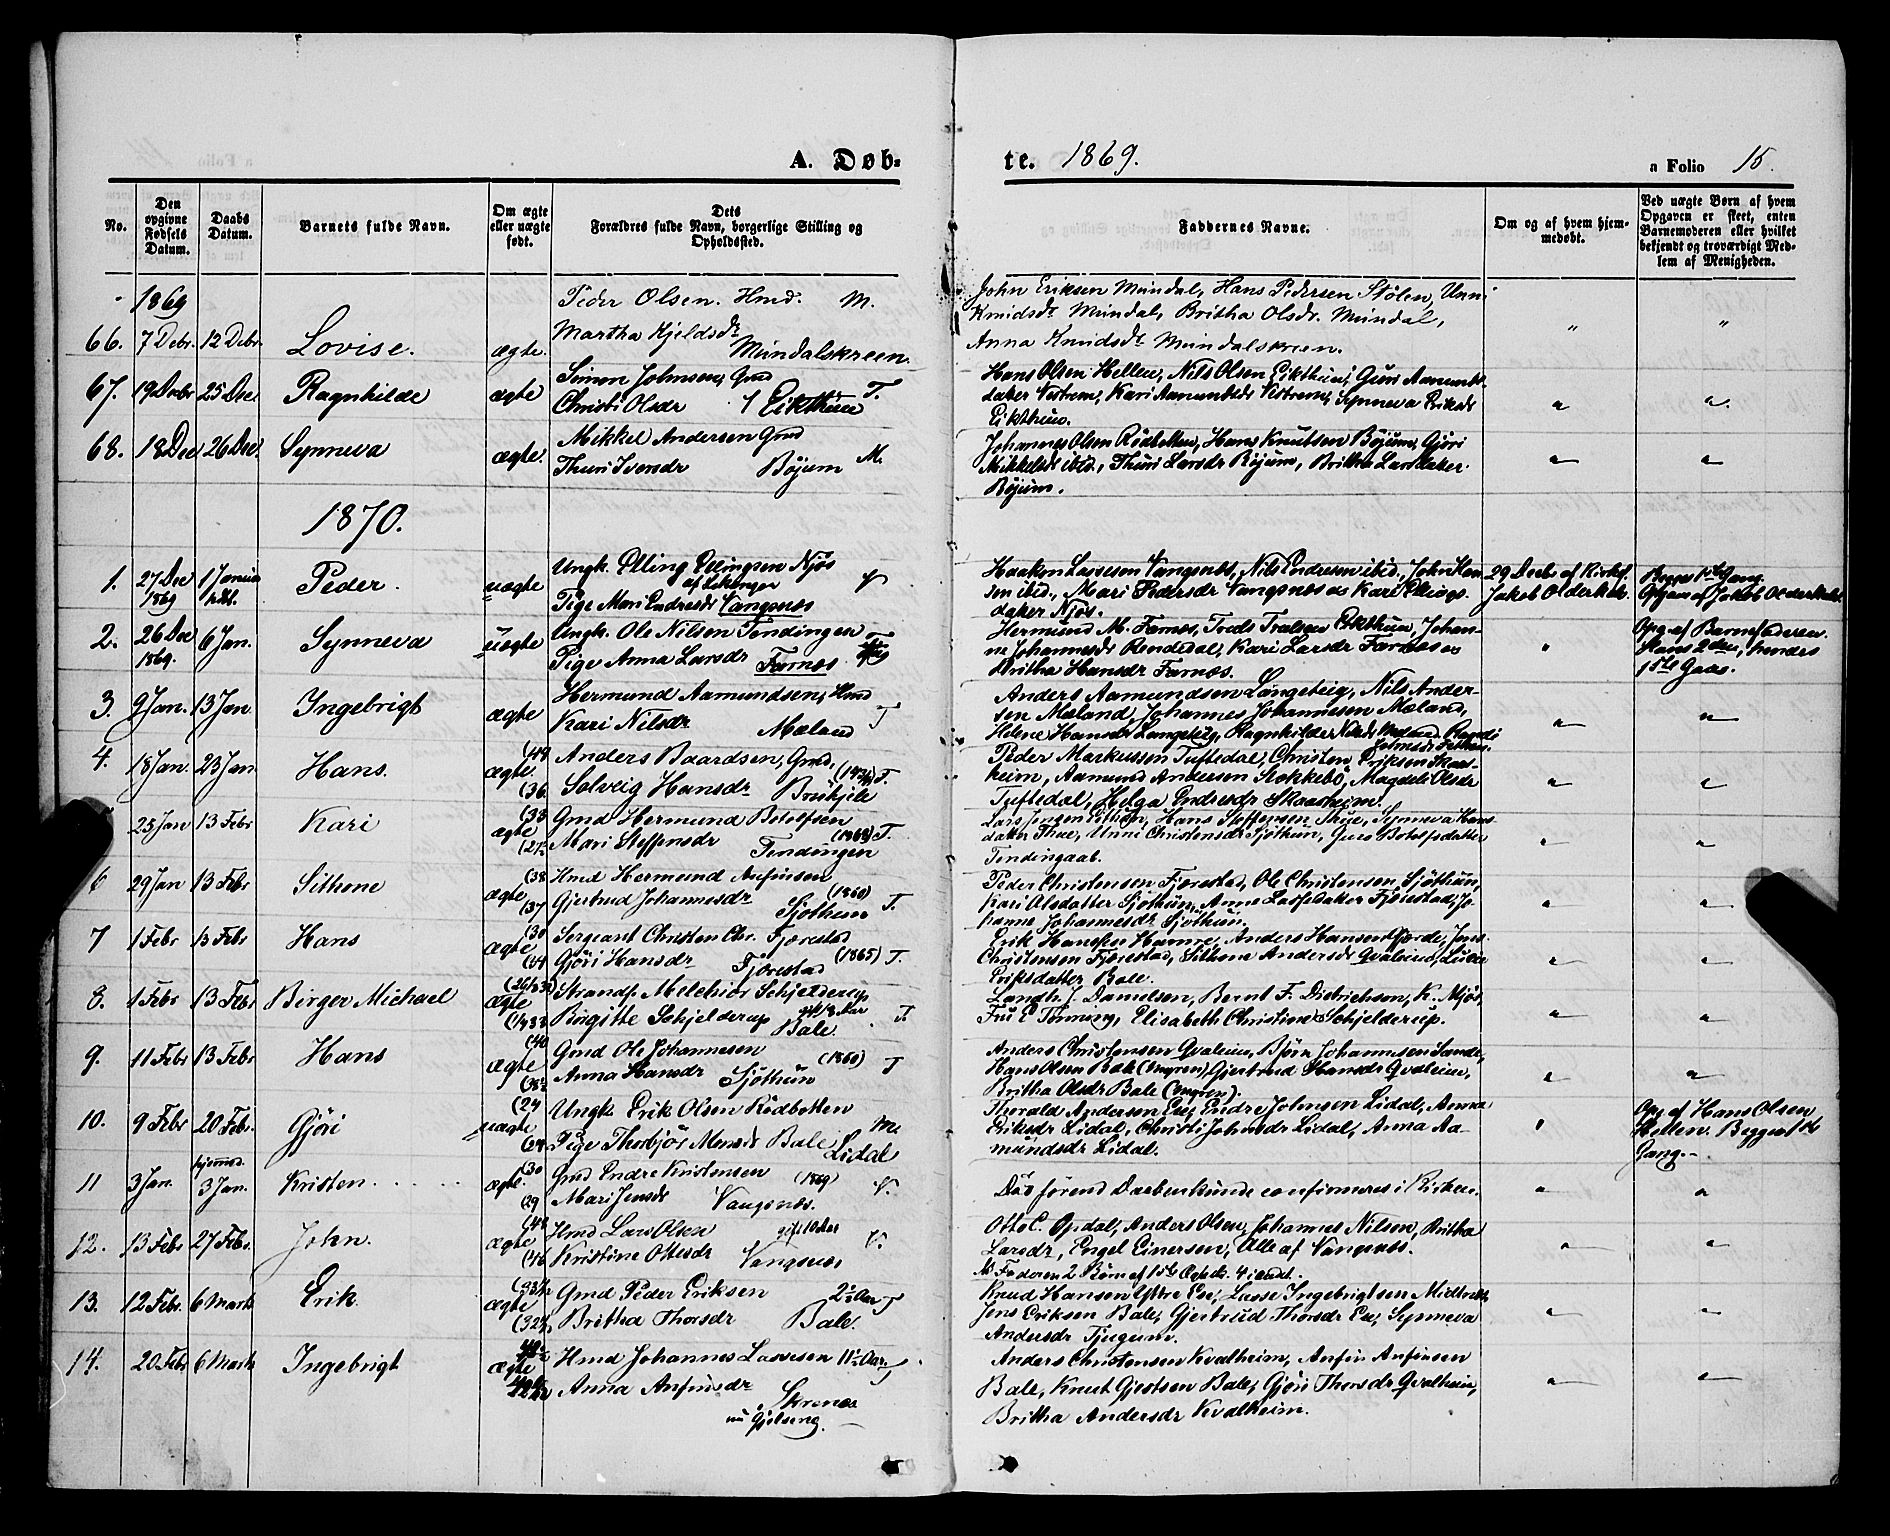 A. Døb-
te. 1869.
a Folio 15.
No.
Den opgivne Fødsels Datum.
Daabs Datum.
Barnets fulde Navn.
Om ægte eller uægte født.
Dets Forældres fulde Navn, borgerlige Stilling og Opholdssted.
Faddernes Navne.
Om og af hvem hjemmedøbt.
Ved uægte Børn af hvem Opgaven er skeet, enten Barnemoderen eller hvilket bekjendt og troværdigt Medlem af Menigheden.
1869
66. 7 Debr. 12 Debr. Lovise. ægte.
Peder Olsen. Hmd. M.
Martha Kjeldsdr
Mundalskreen.
John Eriksen Mundal, Hans Pedersen Stølen, Unni
Knudsdr Mundal, Britha Olsdr. Mundal,
Anna Knudsdr Mundalskreen.
67. 19 Debr 25 Dec Ragnhilde ægte
Simon Johnsen, Gmd
Christi Olsdr Eikthun T.
Hans Olsen Hellen, Nils Olsen Eikthun, Guri Aamunds-
datter Vestrem, Kari Aamundsdr Vestrem, Synneva Eriksdr
Eikthun.
68. 18 Dec 26 Dec. Synneva ægte.
Mikkel Andersen Gmd
Thuri Iversdr Bøjum M.
Johannes Olsen Rødbotten, Hans Knutsen Bøjum, Gjøri
Mikkelsdr ibid., Thuri Larsdr Bøjum, Britha Larsdatter
Bøjum.
1870.
1. 27 Dec 1869 1 Januar Peder. uægte
Ungk. Elling Ellingsen Njøs
af Leikanger
Pige Mari Endresdr Vangsnæs V
Haakon Lassesen Vangsnæs, Nils Endresen ibid., John Han-
sen ibid., Mari Pedersdr Vangsnæs og Kari Ellings-
datter Njøs.
29 Decbr af Kirkes.
Jakob Olderbak.
Begges 1ste Gang.
Opgaven af Jakob Olderbak.
2. 26 Dec 1869. 6 Jan. Synneva uægte
Ungk. Ole Nilsen Tendingen
Pige Anna Larsdr Farnæs. T
Hermund M. Farnæs, Trods Tralsen Eikthun, Johan-
ne Johannesdr Rendedal, Kari Larsdr Farnæs og
Britha Hansdr Farnæs.
Opg. af Barnefaderen.
Hans 2den, hendes
1ste Gang.
3. 9 Jan. 13 Jan Ingebrigt ægte
Hermund Aamundsen, Hmd
Kari Nilsdr Mæland T
Anders Aamundsen Langeteig, Nils Ander-
sen Mæland, Johannes Johannesen Mæland,
Helene Hansdr Langeteig, Ragnhilde Nilsdr Mæland
4. 18 Jan. 23 Jan. Hans. ægte.
Anders Baardsen, Gmd.
(36. Solveig Hansdr T.
Peder Markussen Tuftedal, Christen Eriksen Skaas-
heim, Aamund Andersen Stokkebø, Magdeli Olsdr
Tuftedal, Helga Endresdr Skaasheim.
25 Jan 13 Febr Kari ægte
(33 Gmd Hermund Botolfsen
Mari Steffensdr (1868) T.
Tendingen
Hans Steffensen Thue, Synneva Hans-
datter Thue, Unni Christensdr Sjøthun, Guro Botolfsdatter
Tendingaab.
6 29 Jan 13 Febr Sithone ægte
(38 Hmd Hermund Anfinsen
(37 Gjertrud Johannesdr (1860)
Sjøthun T.
Peder Christensen Fjørestad, Ole Christensen Sjøthun,
Kari Olsdatter Sjøthun, Anne Lassedatter Fjørestad, Jo-
hanne Johannesdr Sjøthun.
7 1 Febr 13 Febr Hans ægte
(30 Sergeant Christen Chr. Fjørestad
Gjøri Hansdr Fjørestad (1865) T.
Erik Hansen Hamre, Anders Hansen Hjorde, Jens
Christensen Fjørestad, Sithone Andersdr Qvaleim,
Eriksdatter Bale.
8. 1 Febr 13 Febr Birger Michael ægte
Strandf. Melchior Schjelderup
Birgitte Schjelderup
Bale T.
Landh. J. Danielsen, Bernt F. Dietrichson, K. Mjøs,
Fru E Tønning, Elisabeth Christine Schjelderup.
9. 11 Febr 13 Febr Hans ægte
(40 Gmd Ole Johannesen
Anna Hansdr Sjøthun (1860) T
Anders Christensen Qvaleim, Bjørn Johannesen Sande,
Hans Olsen Bale (Engren), Gjertrud Hansdr Qvaleim,
Britha Olsdr Bale (Engren).
10. 9 Febr 20 Febr. Gjøri uægte
(24 Ungk. Erik Olsen Rødbotten
Pige Thorbjør Monsdr Bale Lidal M
Thorald Andersen Ese, Endre Johnsen Lidal, Anna
Eriksdr Lidal, Christi Johnsdr Lidal, Anna Aa-
mundsdr Lidal.
Opg. af Hans Olsen
Hellen. Begges 1ste
Gang.
11 3 Jan. hjemmed. 3 Jan. Kristen ægte.
(30 Gmd Endre Kristensen
(29 Mari Jensdr Vangsnæs. (1869) V.
Død førend Daaben kunde confirmeres i Kirken.
12. 13 Febr 27 Febr. John. ægte
Hmd Lars Olsen gift 10 Aar
(46 Kristine Ottesdr Vangsnæs V.
Otto C. Opdal, Anders Olsen, Johannes Nilsen, Britha
Larsdr, Engel Einersen, Alle af Vangsnæs.
NB Faderen 2 Børn af 1ste Ægtesk. 4 i andet.
13. 12 Febr. 6 Marts Erik. ægte
Gmd Peder Eriksen 2½ Aar T
Britha Thorsdr Bale.
Knud Hansen Yttre Ese, Lasse Ingebrigtsen
Jens Eriksen Bale, Gjertrud Thorsdr Ese, Synneva
Andersdr Tjugum.
14. 20 Febr 6 Marts Ingebrigt ægte
Hmd Johannes Lassesen 11½ Aar T
Anna Anfinsdr
Anders Christensen Kvalheim, Anfin Anfinsen
Bale, Knut Gjestsen Bale, Gjøri Thorsdr Qvalheim,
Britha Andersdr Kvalheim.